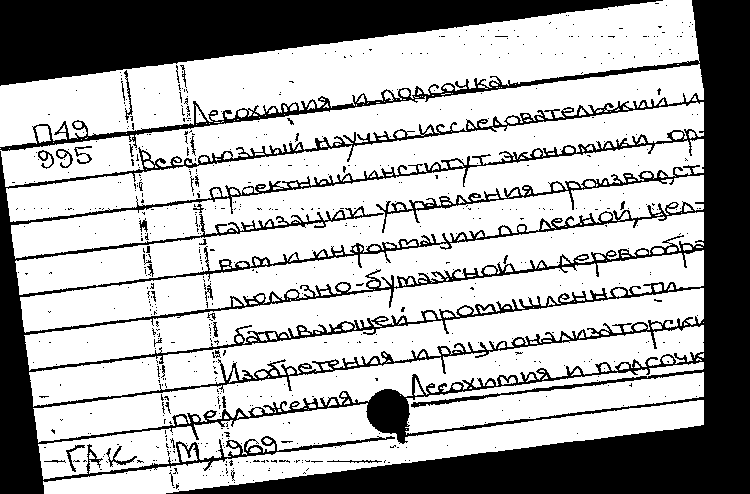 Лесохимия и подсочка.
П49
995 Всесоюзный научно-исследовательский и
проектный институт экономики, ор-
ганизации управления производст-
вом и информации по лесной, цел-
люлозно-бумажной и деревообра
батывающей промышленности.
Изобретения и рационализаторски
предложения. Лесохимия и подсочк
ГАК М, 1969-